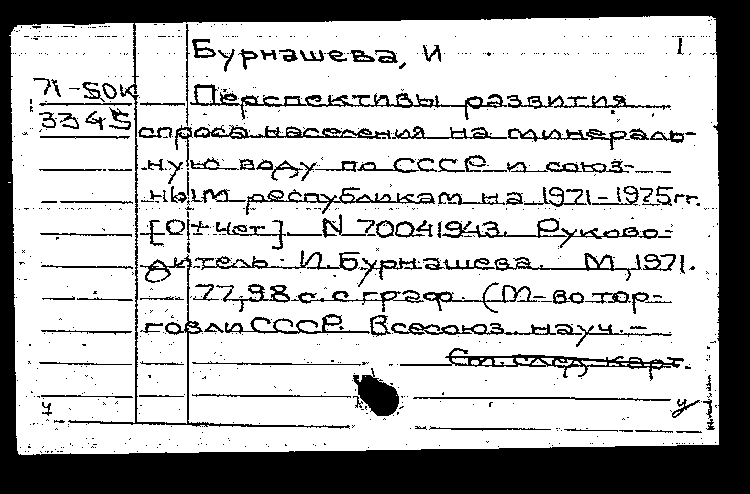 Бурнашева, И 1
71-SOK
3345
Перспективы развития
спроса населения на минераль-
ную воду по СССР и союз-
ным республикам на 1971-1975гг.
[Отчет]. N 70041943. Руково-
дитель: И.Бурнашева. М,1971.
77,98 с. с граф. (М-во тор-
говли СССР. Всесоюз. науч.-
См. след. карт.
ч у